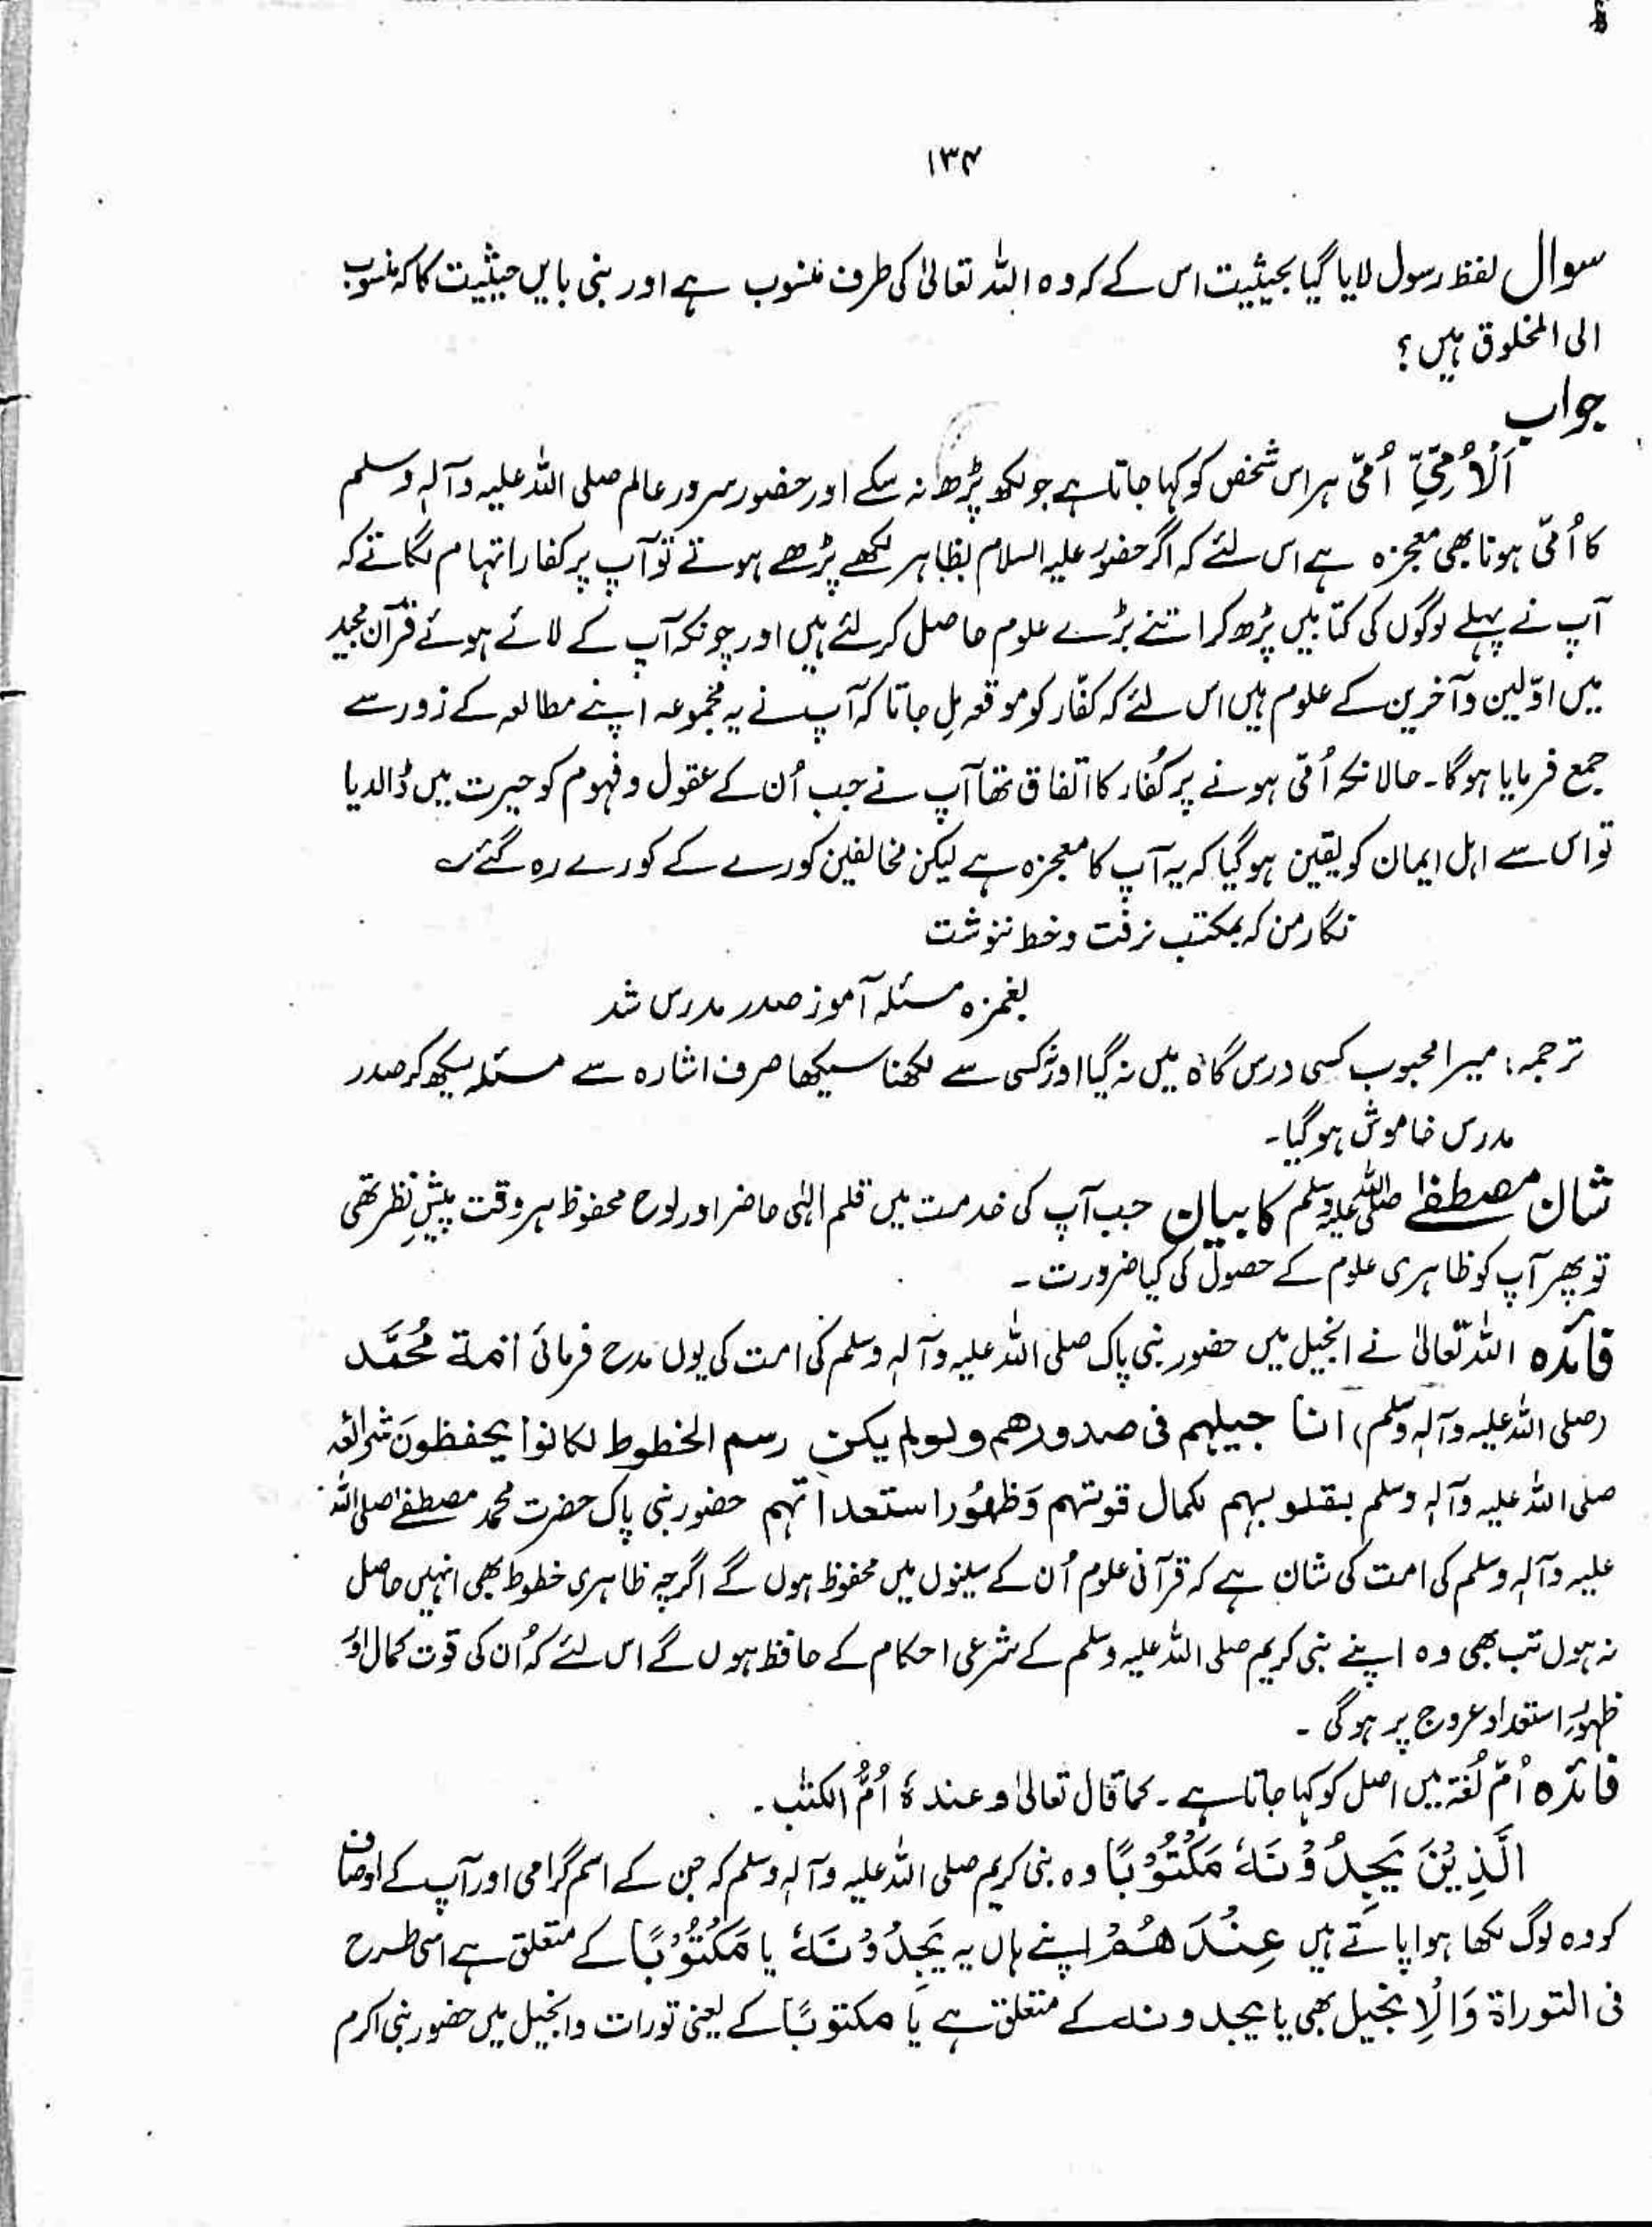 ۱۳۴
سوال لفظ رسول لایا گیا بحیثیت اس کے کہ وہ اللہ تعالیٰ کی طرف منسوب ہے اور نبی بایں حیثیت کا کہ منسوب
الی المخلوق ہیں؟
جواب
اَلْاُمِّیِّ اُمّی ہر اس شخص کو کہا جاتا ہے جو لکھ پڑھ نہ سکے اور حضور سرور عالم صلی اللہ علیہ وآلہٖ وسلم
کا اُمّی ہونا بھی معجزہ ہے اس لئے کہ اگر حضور علیہ السلام بظاہر لکھے پڑھے ہوتے تو آپ پر کفار اتہام لگاتے کہ
آپ نے پہلے لوگوں کی کتابیں پڑھ کر اتنے بڑے علوم حاصل کر لئے ہیں اور چونکہ آپ کے لائے ہوئے قرآن مجید
میں اوّلین وآخرین کے علوم ہیں اس لئے کہ کفّار کو موقعہ مِل جاتا کہ آپ نے یہ مجموعہ اپنے مطالعہ کے زور سے
جمع فرمایا ہوگا۔ حالانکہ اُمّی ہونے پر کُفار کا اتفاق تھا آپ نے جب اُن کے عقول و فہوم کو حیرت میں ڈالدیا
تو اس سے اہل ایمان کو یقین ہو گیا کہ یہ آپ کا معجزہ ہے لیکن مخالفین کورے کے کورے رہ گئے ؎
نگار من کہ بمکتب نرفت و خط ننوشت
بغمزہ مسئلہ آموز صدر مدرس شد
ترجمہ: میرا محبوب کسی درس گاہ میں نہ گیا اور نہ کسی سے لکھنا سیکھا صرف اشارہ سے مسئلہ سیکھ کر صدر
مدرس خاموش ہو گیا۔
شان مصطفےٰ صلی اللہ علیہ وسلم کا بیان جب آپ کی خدمت میں قلم الٰہی حاضر اور لوح محفوظ ہر وقت پیشِ نظر تھی
تو پھر آپ کو ظاہری علوم کے حصول کی کیا ضرورت ۔
فائدہ اللہ تعالیٰ نے انجیل میں حضور نبی پاک صلی اللہ علیہ وآلہٖ وسلم کی امت کی یوں مدح فرمائی امة مُحَمَّد
(صلی اللہ علیہ وآلہٖ وسلم) انا جیلہم فی صدورھم ولو لم یکن رسم الخطوط لکانوا یحفظونَ شرائعہ
صلی اللہ علیہ وآلہٖ وسلم بقلوبہم لکمال قوتہم وَظہُور استعداتہم حضور نبی پاک حضرت محمد مصطفےٰ صلی اللہ
علیہ وآلہٖ وسلم کی امت کی شان ہے کہ قرآنی علوم اُن کے سینوں میں محفوظ ہوں گے اگرچہ ظاہری خطوط بھی انہیں حاصل
نہ ہوں تب بھی وہ اپنے نبی کریم صلی اللہ علیہ وسلم کے شرعی احکام کے حافظ ہوں گے اس لئے کہ اُن کی قوت کمال اور
ظہور استعداد عروج پر ہوگی ۔
فائدہ اُمّ لُغۃ میں اصل کو کہا جاتا ہے ۔ کما قال تعالیٰ وعندہٗ اُمُّ الکتٰب ۔
الَّذِیْنَ یَجِدُوْنَہٗ مَکْتُوْبًا وہ نبی کریم صلی اللہ علیہ وآلہٖ وسلم کہ جن کے اسم گرامی اور آپ کے اوصاف
کو وہ لوگ لکھا ہوا پاتے ہیں عِنْدَھُمْ اپنے ہاں یہ یَجِدُوْنَہٗ یا مَکْتُوْبًا کے متعلق ہے اسی طرح
فی التوراة وَالْاِنجیل بھی یا یجدونہ کے متعلق ہے یا مکتوبًا کے یعنی تورات وانجیل میں حضور نبی اکرم